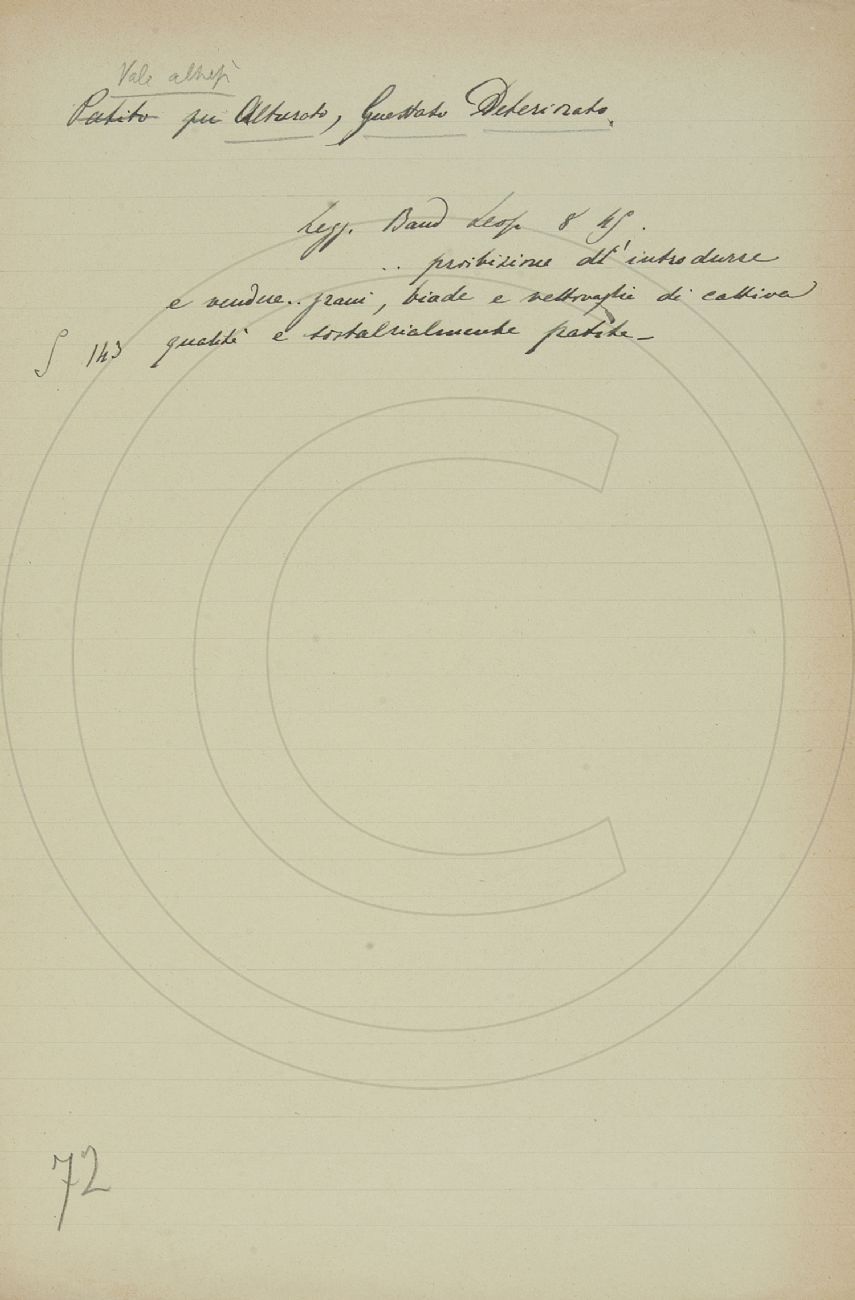 Vale altresì
Patito per Alterato, Guastato Deteriorato.
Legg. Band Leop. 8 45.
.. proibizione d' introdurre
e vendere.. grani, biade e vettovaglie di cattiva
§ 143 qualità e patite_
72